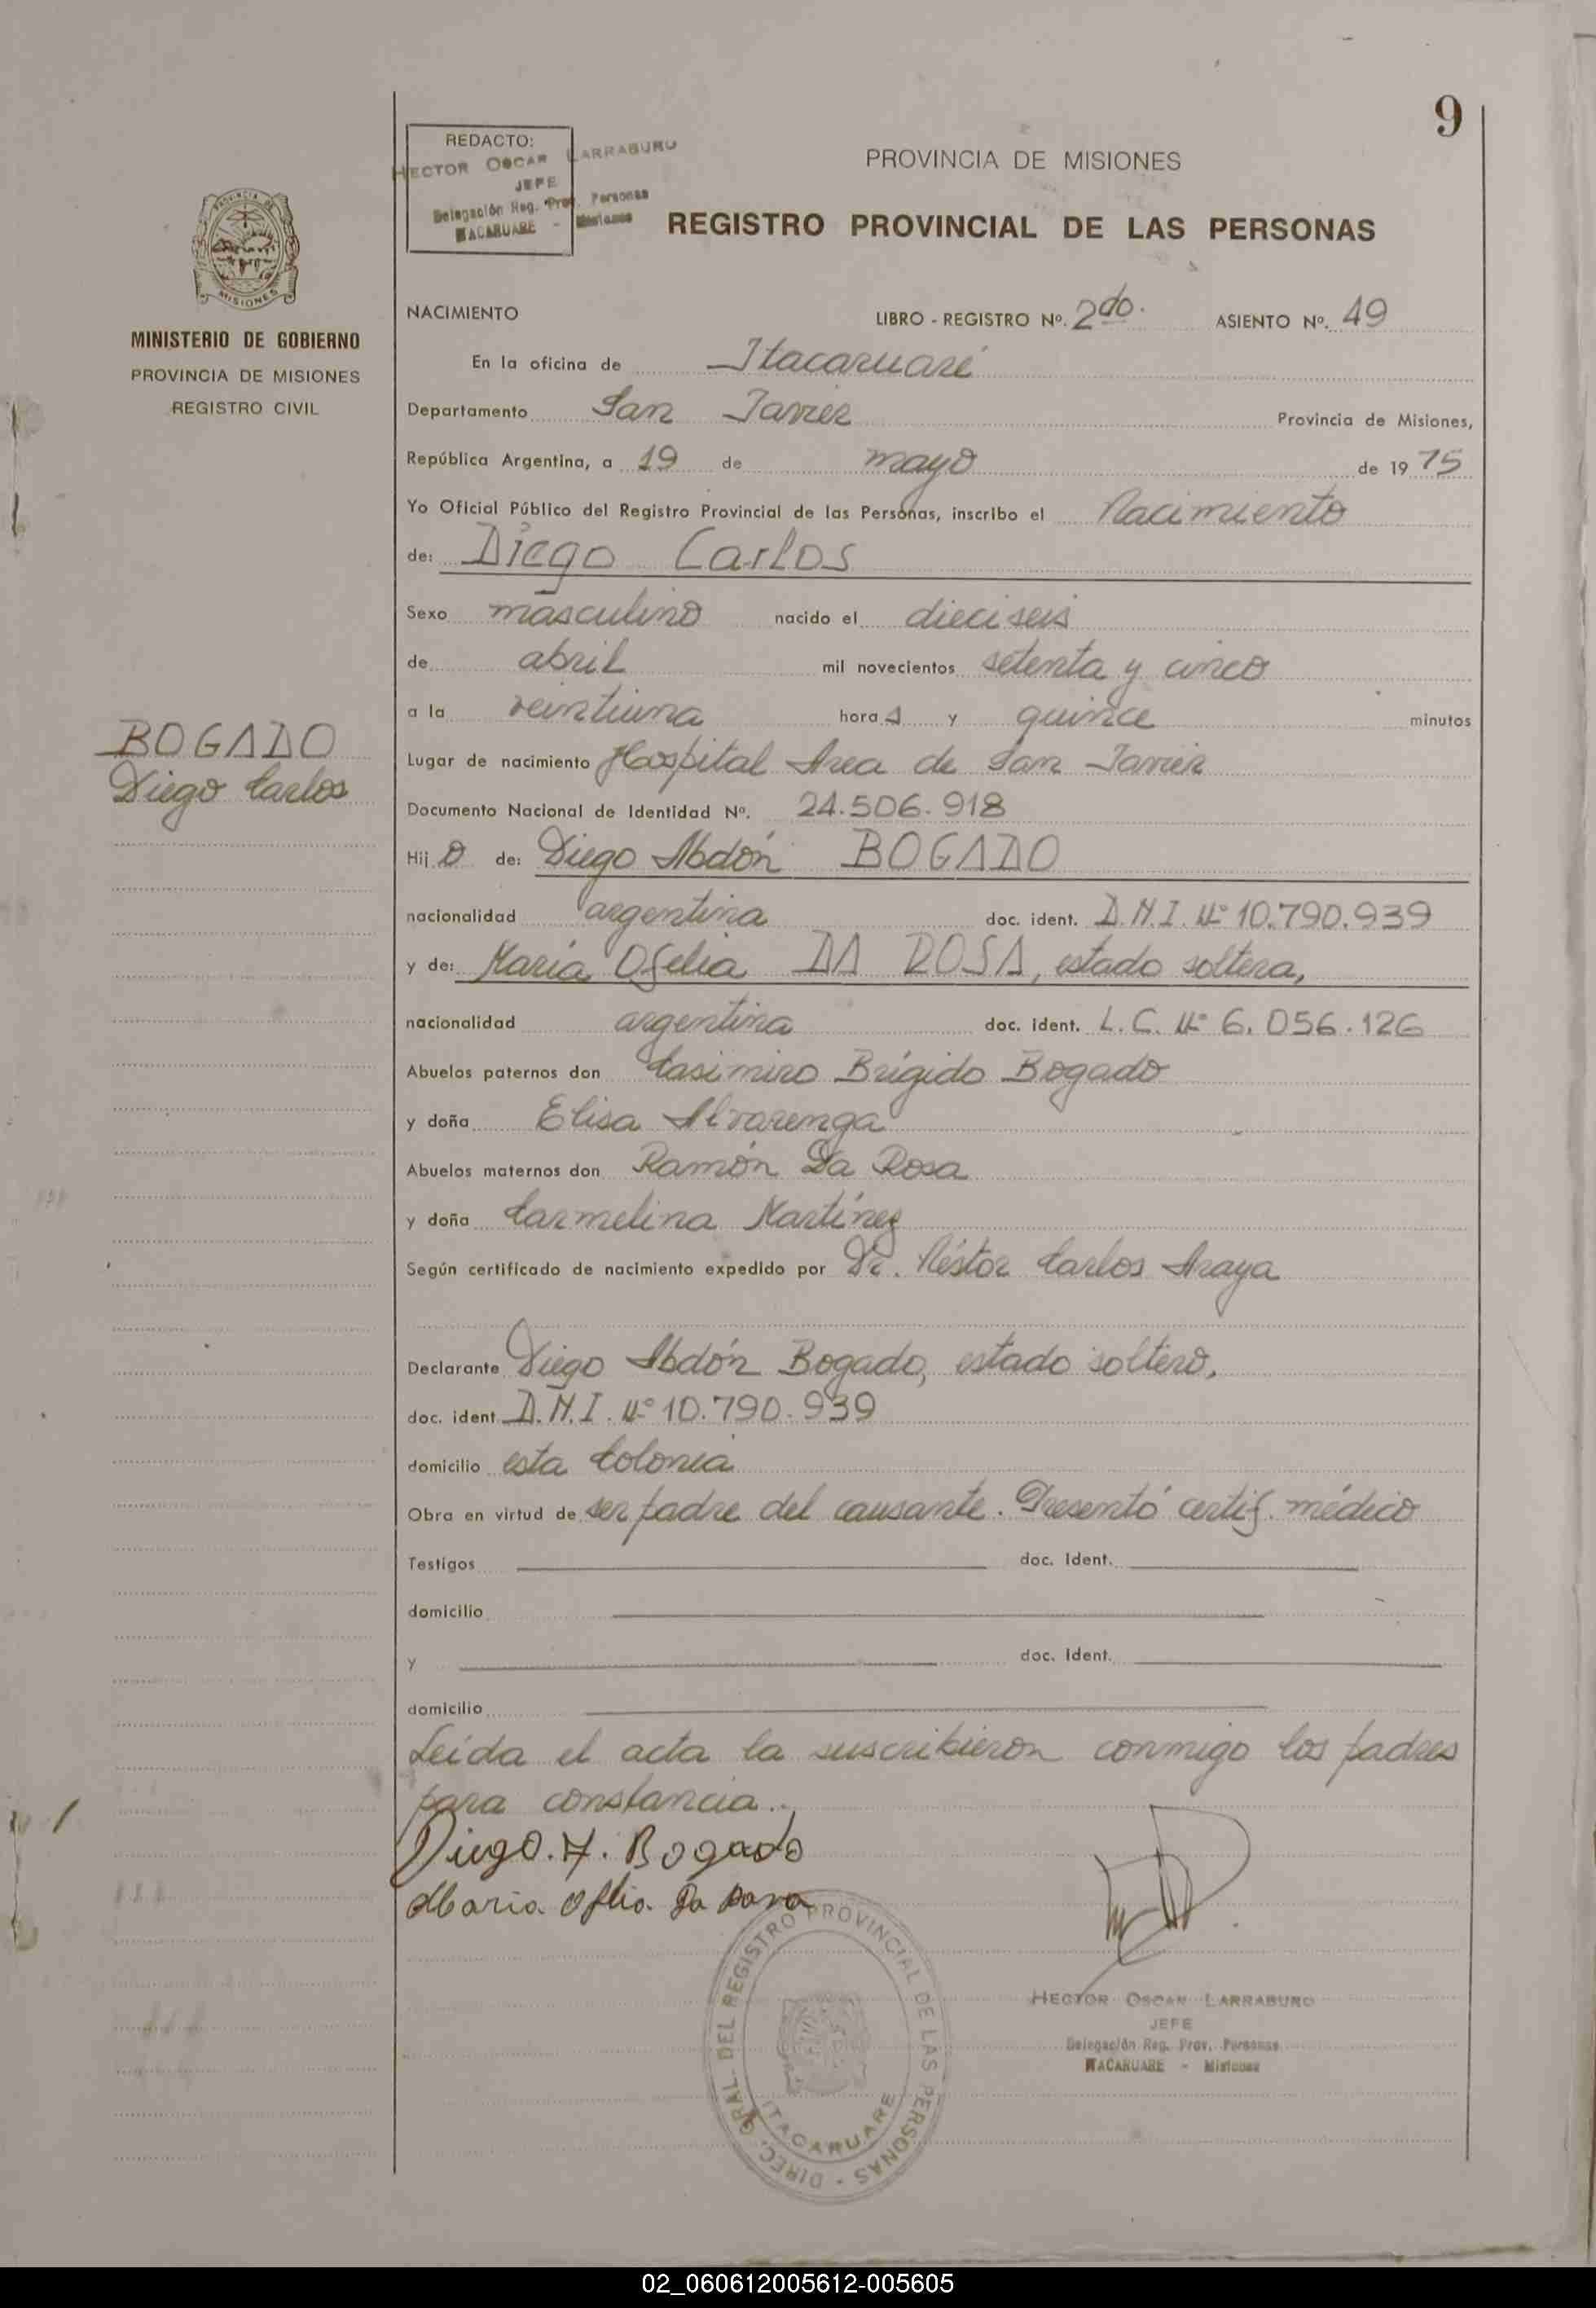 9
REDACTO:
HECTOR OSCAR LARRABURU
JEFE
Delegación Reg. Prov. Personas
ITACARUARE - Misiones
PROVINCIA DE MISIONES
REGISTRO PROVINCIAL DE LAS PERSONAS
MISIONES
MINISTERIO DE GOBIERNO
PROVINCIA DE MISIONES
REGISTRO CIVIL
NACIMIENTO LIBRO - REGISTRO Nº. 2do. ASIENTO Nº. 49
En la oficina de Itacaruaré
Departamento San Javier Provincia de Misiones,
República Argentina, a 19 de mayo de 19 75
Yo Oficial Público del Registro Provincial de las Personas, inscribo el Nacimiento
de: Diego Carlos
Sexo masculino nacido el dieciseis
de abril mil novecientos setenta y cinco
a la veintiuna hora s y quince minutos
BOGADO
Diego Carlos
Lugar de nacimiento Hospital Area de San Javier
Documento Nacional de Identidad Nº. 24.506.918
Hij o de: Diego Abdón BOGADO
nacionalidad argentina doc. ident. D.N.I. Nº 10.790.939
y de: María Ofelia DA ROSA, estado soltera,
nacionalidad argentina doc. ident. L.C. Nº 6.056.126
Abuelos paternos don Casimiro Brígido Bogado
y doña Elisa Alvarenga
Abuelos maternos don Ramón Da Rosa
y doña Carmelina Martínez
Según certificado de nacimiento expedido por Dr. Néstor Carlos Araya
Declarante Diego Abdón Bogado, estado soltero,
doc. ident D.N.I. Nº 10.790.939
domicilio esta Colonia
Obra en virtud de ser padre del causante. Presentó certif. médico
Testigos doc. Ident.
domicilio
y doc. Ident.
domicilio
Leída el acta la suscribieron conmigo los padres
para constancia.
Diego. A. Bogado
Maria Oflia. Da Rosa
DIREC. GRAL. DEL REGISTRO PROVINCIAL DE LAS PERSONAS -
ITACARUARE
HECTOR OSCAR LARRABURU
JEFE
Delegación Reg. Prov. Personas
ITACARUARE - Misiones
02_060612005612-005605